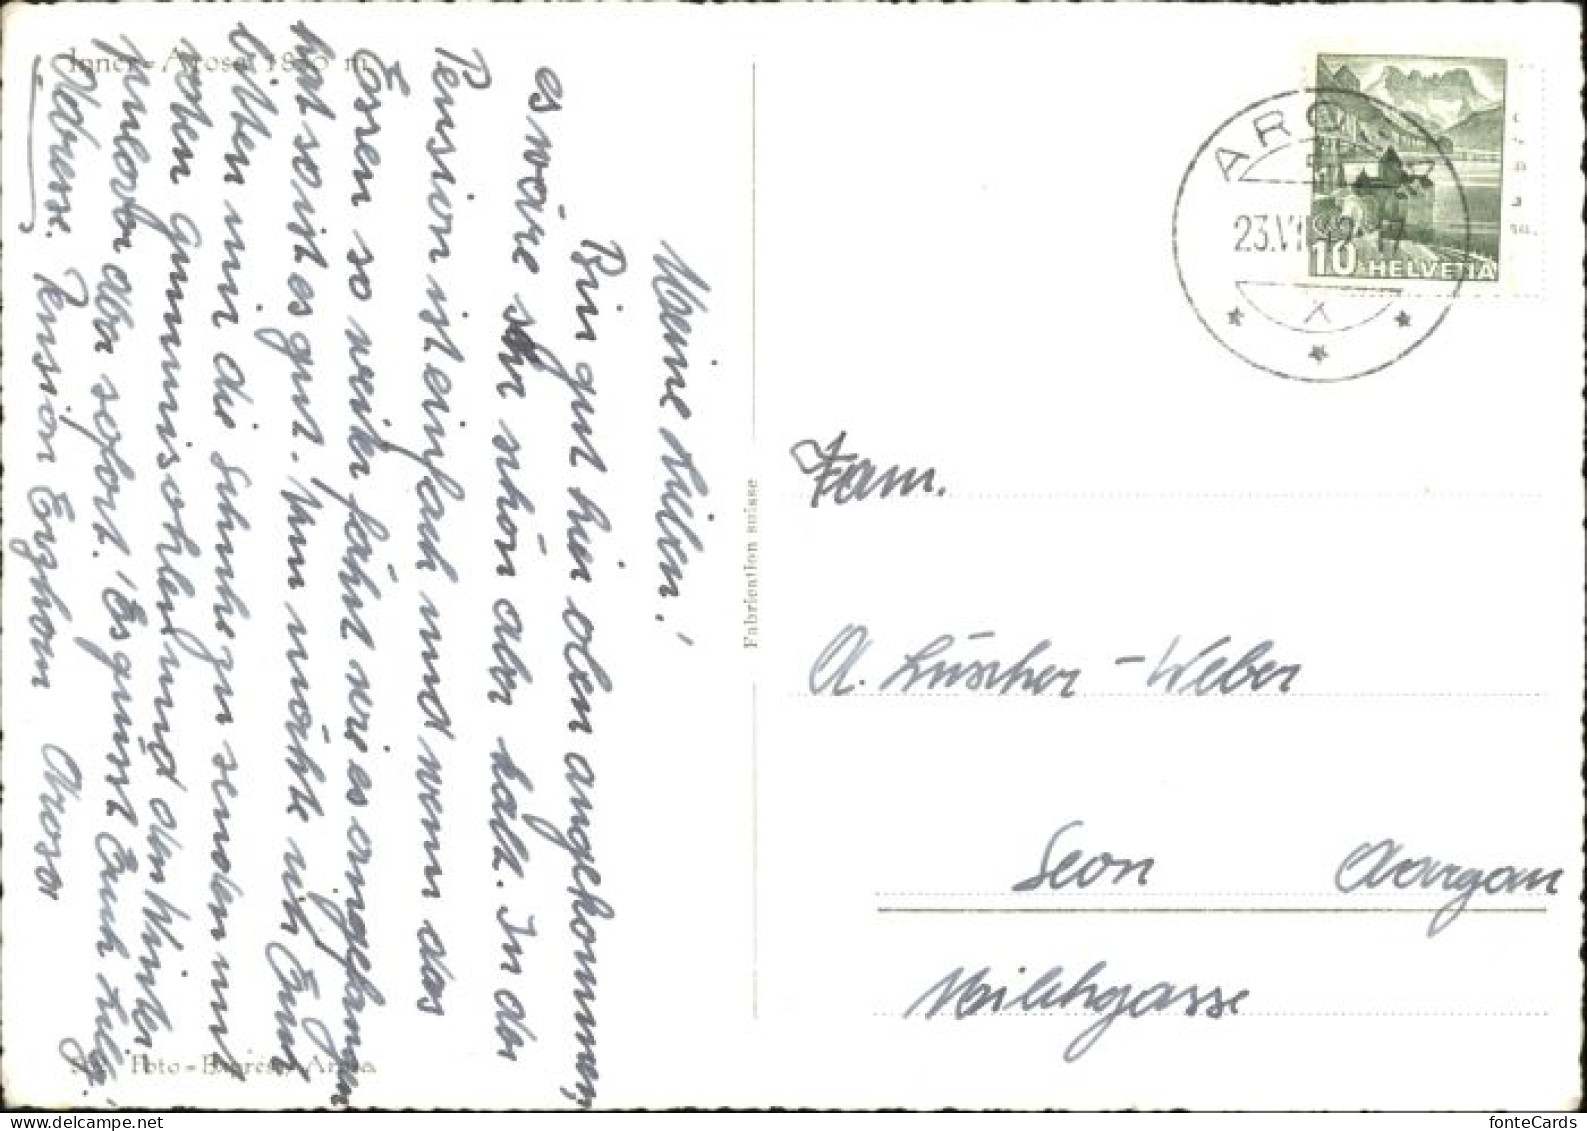 Inner-Arosa 1850 m
Meine Lieben!
Bin gut hier oben angekommen,
es wäre sehr schön aber kalt. In der
Pension ist einfach und wenn das
Essen so weiter fährt wie es angefangen
hat so ist es gut. Nun möchte ich Euch
bitten mir die Schuhe zu senden mit
roten Gummisohlen und den Winter
aber sofort. Es grüsst Euch
Adresse: Pension Arosa
Foto-Express Arosa
Fabrication suisse
AROSA
23.VI 17
10 HELVETIA
Fam.
A. Lüscher-Weber
Seon Aargau
Milchgasse
fonteCards